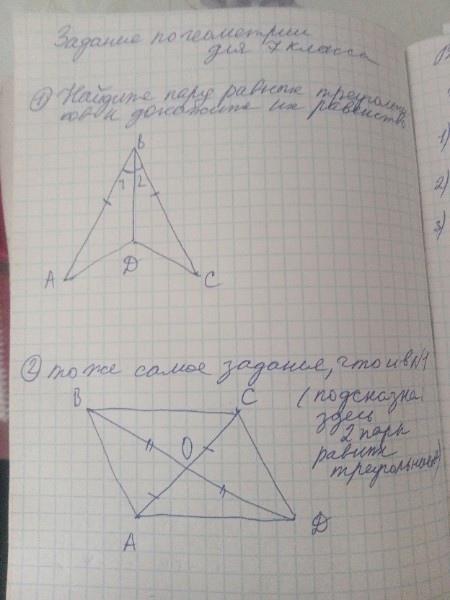 Задание по геометрии
для 7 класса
① Найдите пару равных треугольни
ков и докажите их равенство
B
1 2
A
D
C
② то же самое задание, что и в №1
B
C
(подсказка
здесь
2 пары
равных
треугольников)
O
A
D
1)
2)
3)